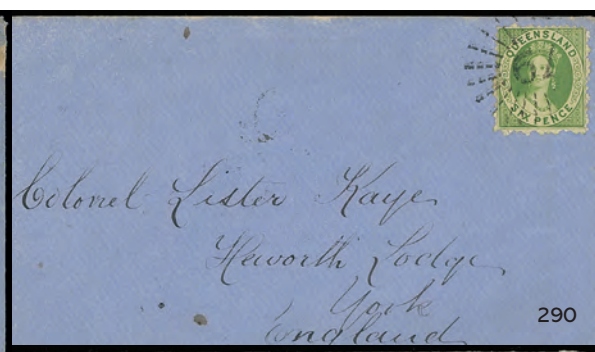 QUEENSLAND
SIX PENCE
Colonel Lister Kaye
Heworth Lodge
York
England
290